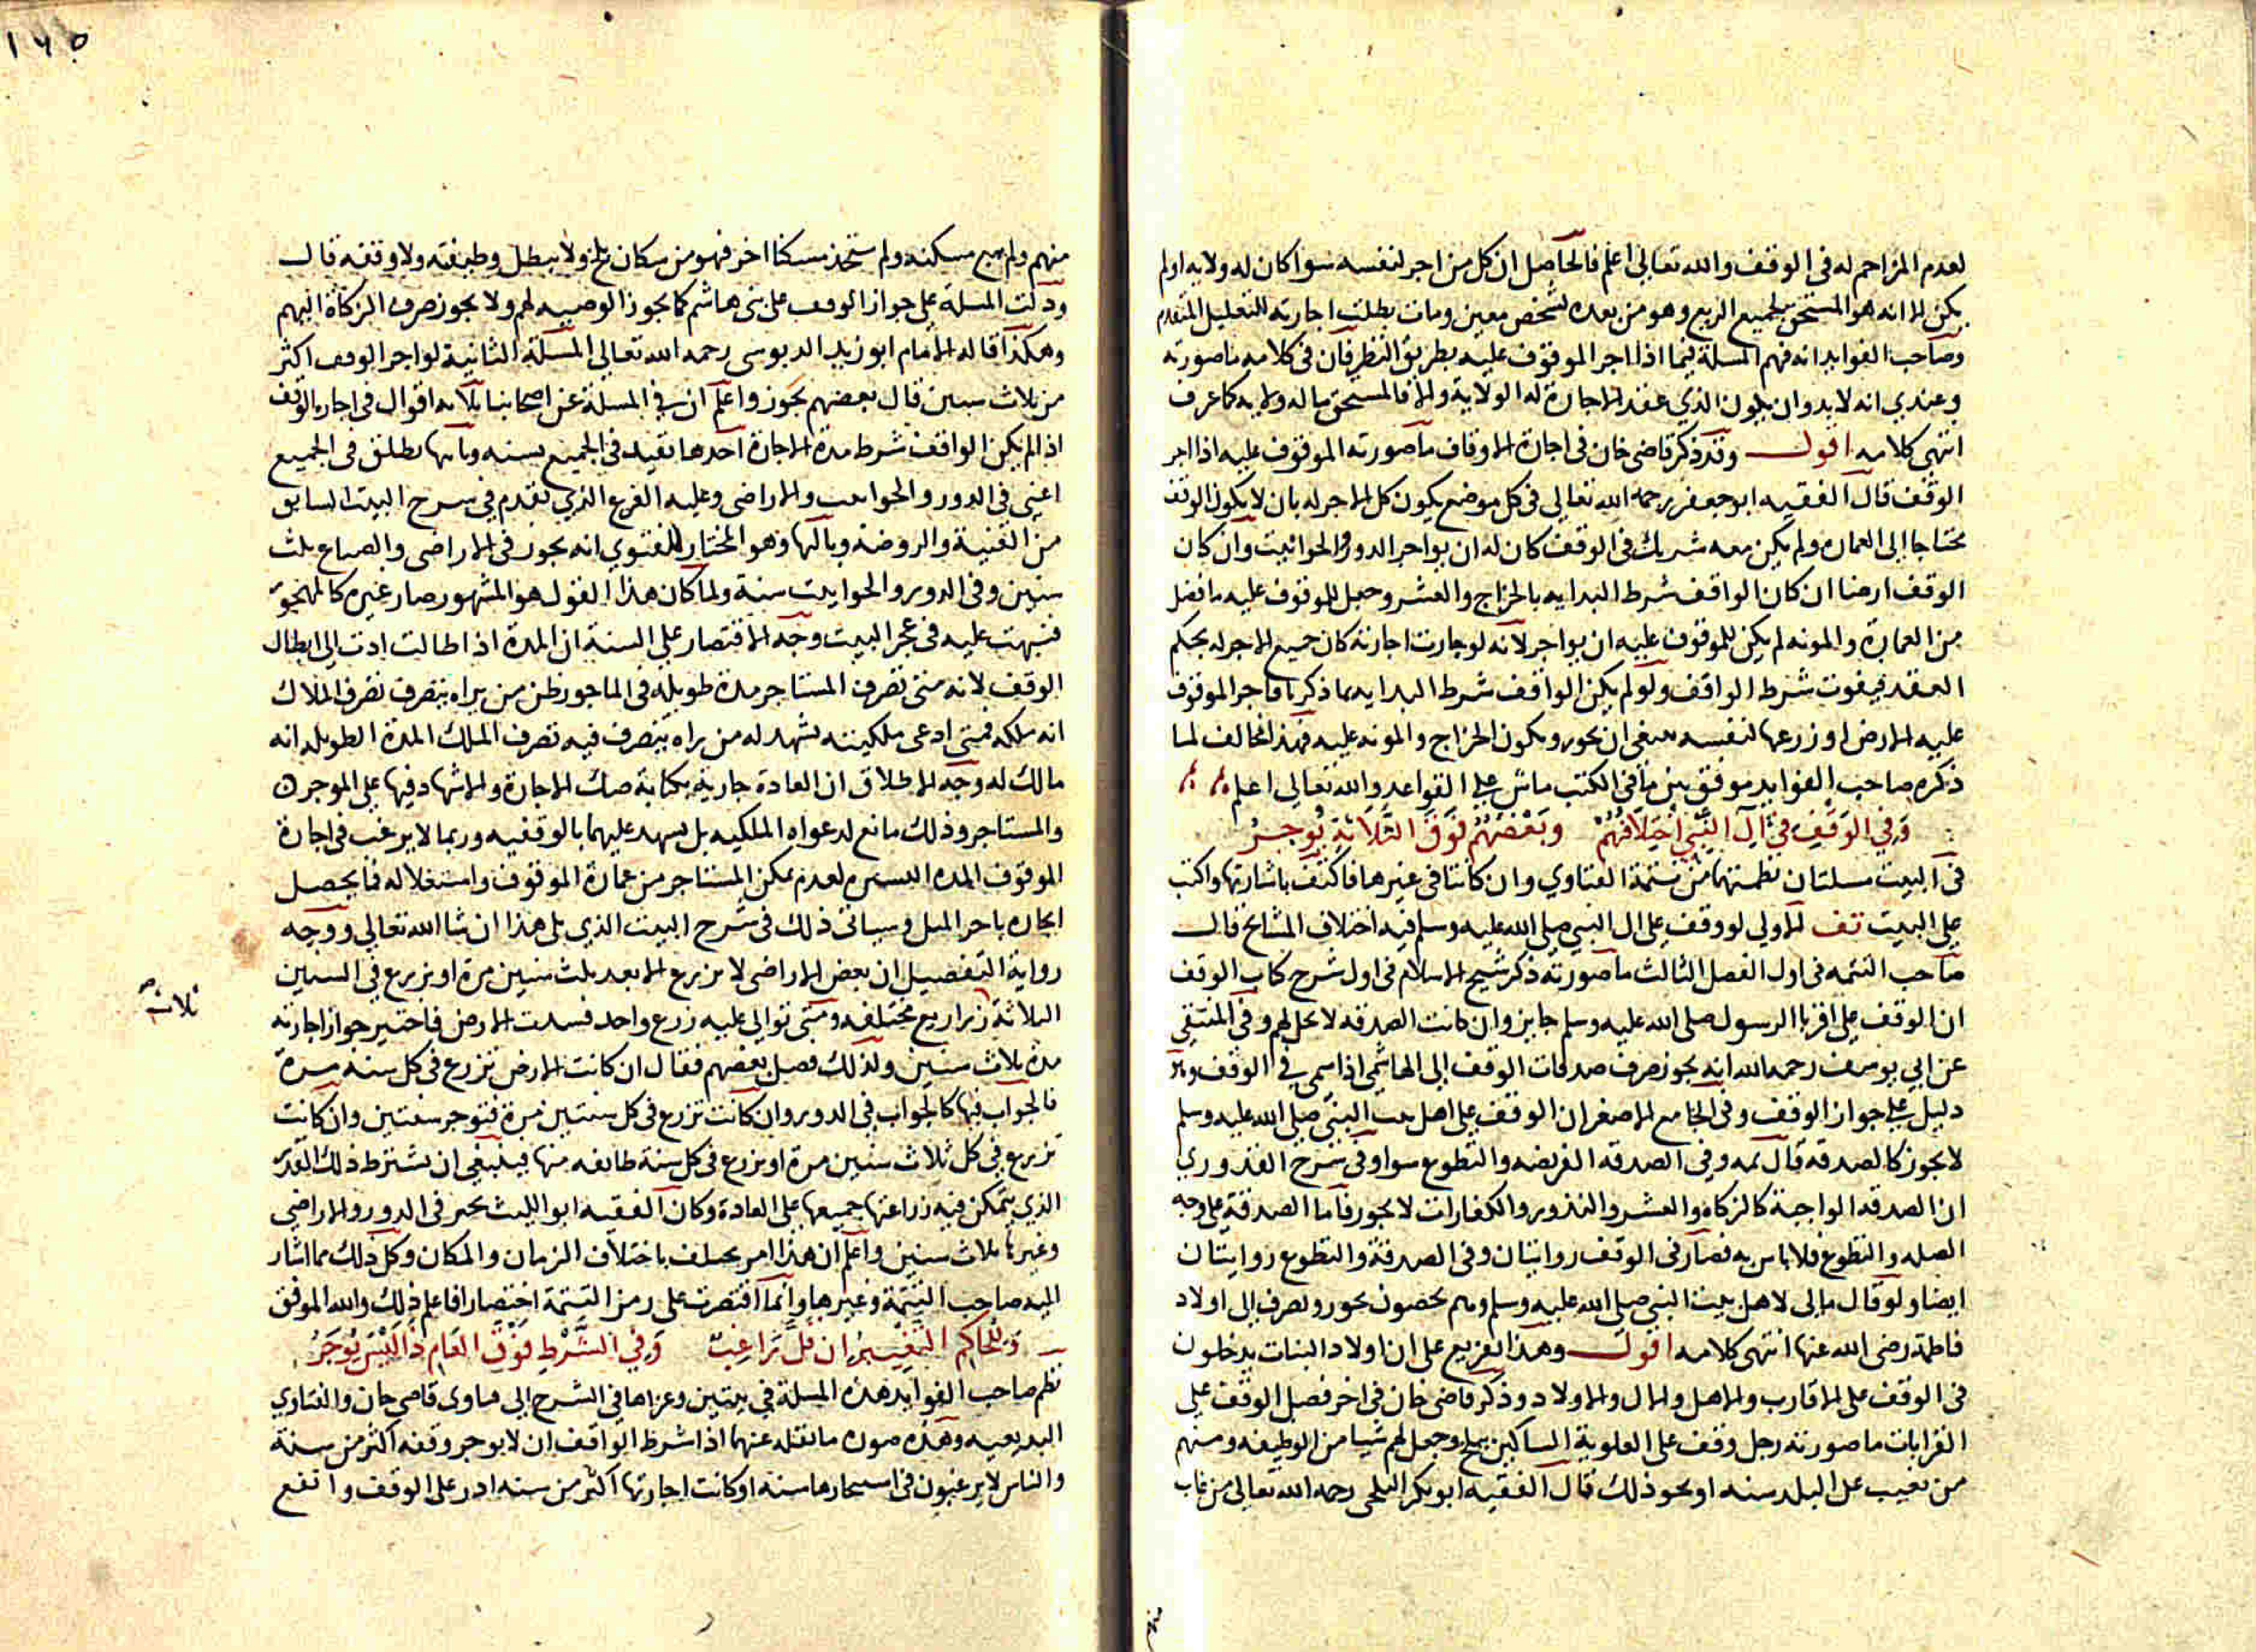 لعدم المزاحم له في الوقف والله تعالى اعلم فالحاصل ان كل من اجر لنفسه سوا كان له ولايه اولم
يكن الا انه هو المستحق لجميع الريع وهو من بعده لشخص معين ومات بطلت اجارته للتعليل المتقدم
وصاحب الفوايد انه فهم المسلة فيما اذا اجر الموقوف عليه بطريق النظر فان في كلامه ما صورته
وعندي انه لا بد وان يكون الذي عقد الاجارة له الولاية والا فالمستحق ماله ولايه كما عرف
انتهى كلامه اقول وقد ذكر قاضي خان في اجارة الاوقاف ما صورته الموقوف عليه اذا اجر
الوقف قال الفقيه ابو جعفر رحمه الله تعالى في كل موضع يكون كل الاجر له بان لا يكون الوقف
محتاجا الى العماره ولم يكن معه شريك في الوقف كان له ان يواجر الدور والحوانيت وان كان
الوقف ارضا ان كان الواقف شرط البدايه بالخراج والعشر وجعل للموقوف عليه ما فضل
من العمارة والمونه لم يكن للموقوف عليه ان يواجر لانه لو جازت اجارته كان جميع الاجر له بحكم
العقد فيفوت شرط الواقف ولو لم يكن الواقف شرط البدايه بما ذكرنا فاجر الموقوف
عليه الارض او زرعها لنفسه ينبغي ان يجوز ويكون الخراج والمونه عليه فهذا مخالف لما
ذكره صاحب الفوايد موفق بين ما في الكتب ماش على القواعد والله تعالى اعلم
وَفِي الوَقْفِ في آلِ النَّبِيِّ اخْتِلَافُهُمْ وبَعْضُهُمْ فَوْقَ الثَّلَاثَةِ يُوجِرُ
في البيت مسلتان نظمتهما من تتمة الفتاوي وان كانتا في غيرها فاكتف باشارتها واكتب
على البيت تف الاولى لو وقف على ال النبي صلى الله عليه وسلم فيه اختلاف المشايخ قال
صاحب التتمه في اول الفصل الثالث ما صورته ذكر شيخ الاسلام في اول شرح كتاب الوقف
ان الوقف على اقربا الرسول صلى الله عليه وسلم جايز وان كانت الصدقه لا تحل لهم وفي المنتقى
عن ابي يوسف رحمه الله انه يجوز صرف صدقات الوقف الى الهاشمي اذا سمي في الوقف
دليل على جواز الوقف وفي الجامع الاصغر ان الوقف على اهل بيت النبي صلى الله عليه وسلم
لا يجوز كالصدقه قال ثمه وفي الصدقه الفريضه والتطوع سوا وفي شرح القدوري
ان الصدقه الواجبة كالزكاه والعشر والنذور والكفارات لا يجوز فاما الصدقة على وجه
الصله والتطوع فلا باس به فصار في الوقف روايتان وفي الصدقة والتطوع روايتان
ايضا ولو قال مالي لاهل بيت النبي صلى الله عليه وسلم وهم يحصون يجوز ويصرف الى اولاد
فاطمة رضي الله عنها انتهى كلامه اقول وهذا تفريع على ان اولاد البنات يدخلون
في الوقف على الاقارب والاهل والال والاولاد وذكر قاضي خان في اخر فصل الوقف على
القرابات ما صورته رجل وقف على العلوية الساكنين ببلخ وجعل لهم شيا من الوظيفه ومنهم
من تغيب عن البلد سنه او نحو ذلك قال الفقيه ابو بكر البلخي رحمه الله تعالى من غاب
منهم
١٦٥
منهم ولم يبع مسكنه ولم يتخذ مسكنا اخر فهو من سكان بلخ ولا يبطل وظيفته ولا وقفه قال
ودلت المسلة على جواز الوقف على بني هاشم كما يجوز الوصيه لهم ولا يجوز صرف الزكاة اليهم
وهكذا قاله الامام ابو زيد الدبوسي رحمه الله تعالى المسلة الثانية لو اجر الوقف اكثر
من ثلاث سنين قال بعضهم يجوز واعلم ان في المسلة عن اصحابنا ثلاثه اقوال في اجاره الوقف
اذا لم يكن الواقف شرط مدة الاجارة احدها تقيد في الجميع بسنه وثانيها تطلق في الجميع
اعني في الدور والحوانيت والاراضي وعليه الفرع الذي تقدم في شرح البيت السابق
من القنية والروضة وثالثها وهو المختار للفتوى انه يجوز في الاراضي والضياع ثلث
سنين وفي الدور والحوانيت سنة ولما كان هذا القول هو المشهور صار غيره كالمهجور
فنبهت عليه في عجز البيت وجه الاقتصار على السنة ان المدة اذا طالت ادت الى ابطال
الوقف لانه متى تصرف المستاجر مدة طويلة في الماجور ظن من يراه يتصرف تصرف الملاك
انه ملكه فمتى ادعى ملكيته يشهد له من راه يتصرف فيه تصرف الملك المدة الطويله انه
مالك له وجه الاطلاق ان العادة جارية بكتابة صك الاجارة والاشهاد فيها على الموجر
والمستاجر وذلك مانع لدعواه الملكيه بل يشهد عليهما بالوقفيه وربما لا يرغب في اجارة
الموقوف المده اليسيره لعدم تمكن المستاجر من عمارة الموقوف واستغلاله فما يحصل
ايجاره باجر المثل وسياتي ذلك في شرح البيت الذي يلي هذا ان شا الله تعالى ووجه
رواية التفصيل ان بعض الاراضي لا يزرع الا بعد ثلث سنين مرة او يزرع في السنين
الثلاثة زراريع مختلفه ومتى توالى عليه زرع واحد فسدت الارض فاختير جواز اجارته
ثلاث
مدة ثلاث سنين ولذلك فصل بعضهم فقال ان كانت الارض تزرع في كل سنه مرة
فالجواب فيها كالجواب في الدور وان كانت تزرع في كل سنتين مرة فتوجر سنتين وان كانت
تزرع في كل ثلاث سنين مرة او تزرع في كل سنة طايفه منها فينبغي ان يشترط ذلك القدر
الذي يتمكن فيه زراعتها جميعها على العادة وكان الفقيه ابو الليث يجيز في الدور والاراضي
وغيرها ثلاث سنين واعلم ان هذا امر يختلف باختلاف الزمان والمكان وكل ذلك مما اشار
اليه صاحب التتمة وغيرها وانما اقتصرت على رمز التتمة اختصارا فاعلم ذلك والله الموفق
وَلِلحَاكِمِ التَّغْيِيرُ ان قَلَّ رَاغِبٌ وَفي الشَّرْطِ فَوْقَ العَامِ ذَا لَيْسَ يُوجَرُ
نظم صاحب الفوايد هذه المسلة في بيتين وعزاها في الشرح الى فتاوى قاضي خان والفتاوي
البديعيه وهذه صوره ما نقله عنهما اذا شرط الواقف ان لا يوجر وقفه اكثر من سنة
والناس لا يرغبون في استيجارها سنه او كانت اجارتها اكثر من سنه ادر على الوقف وانفع